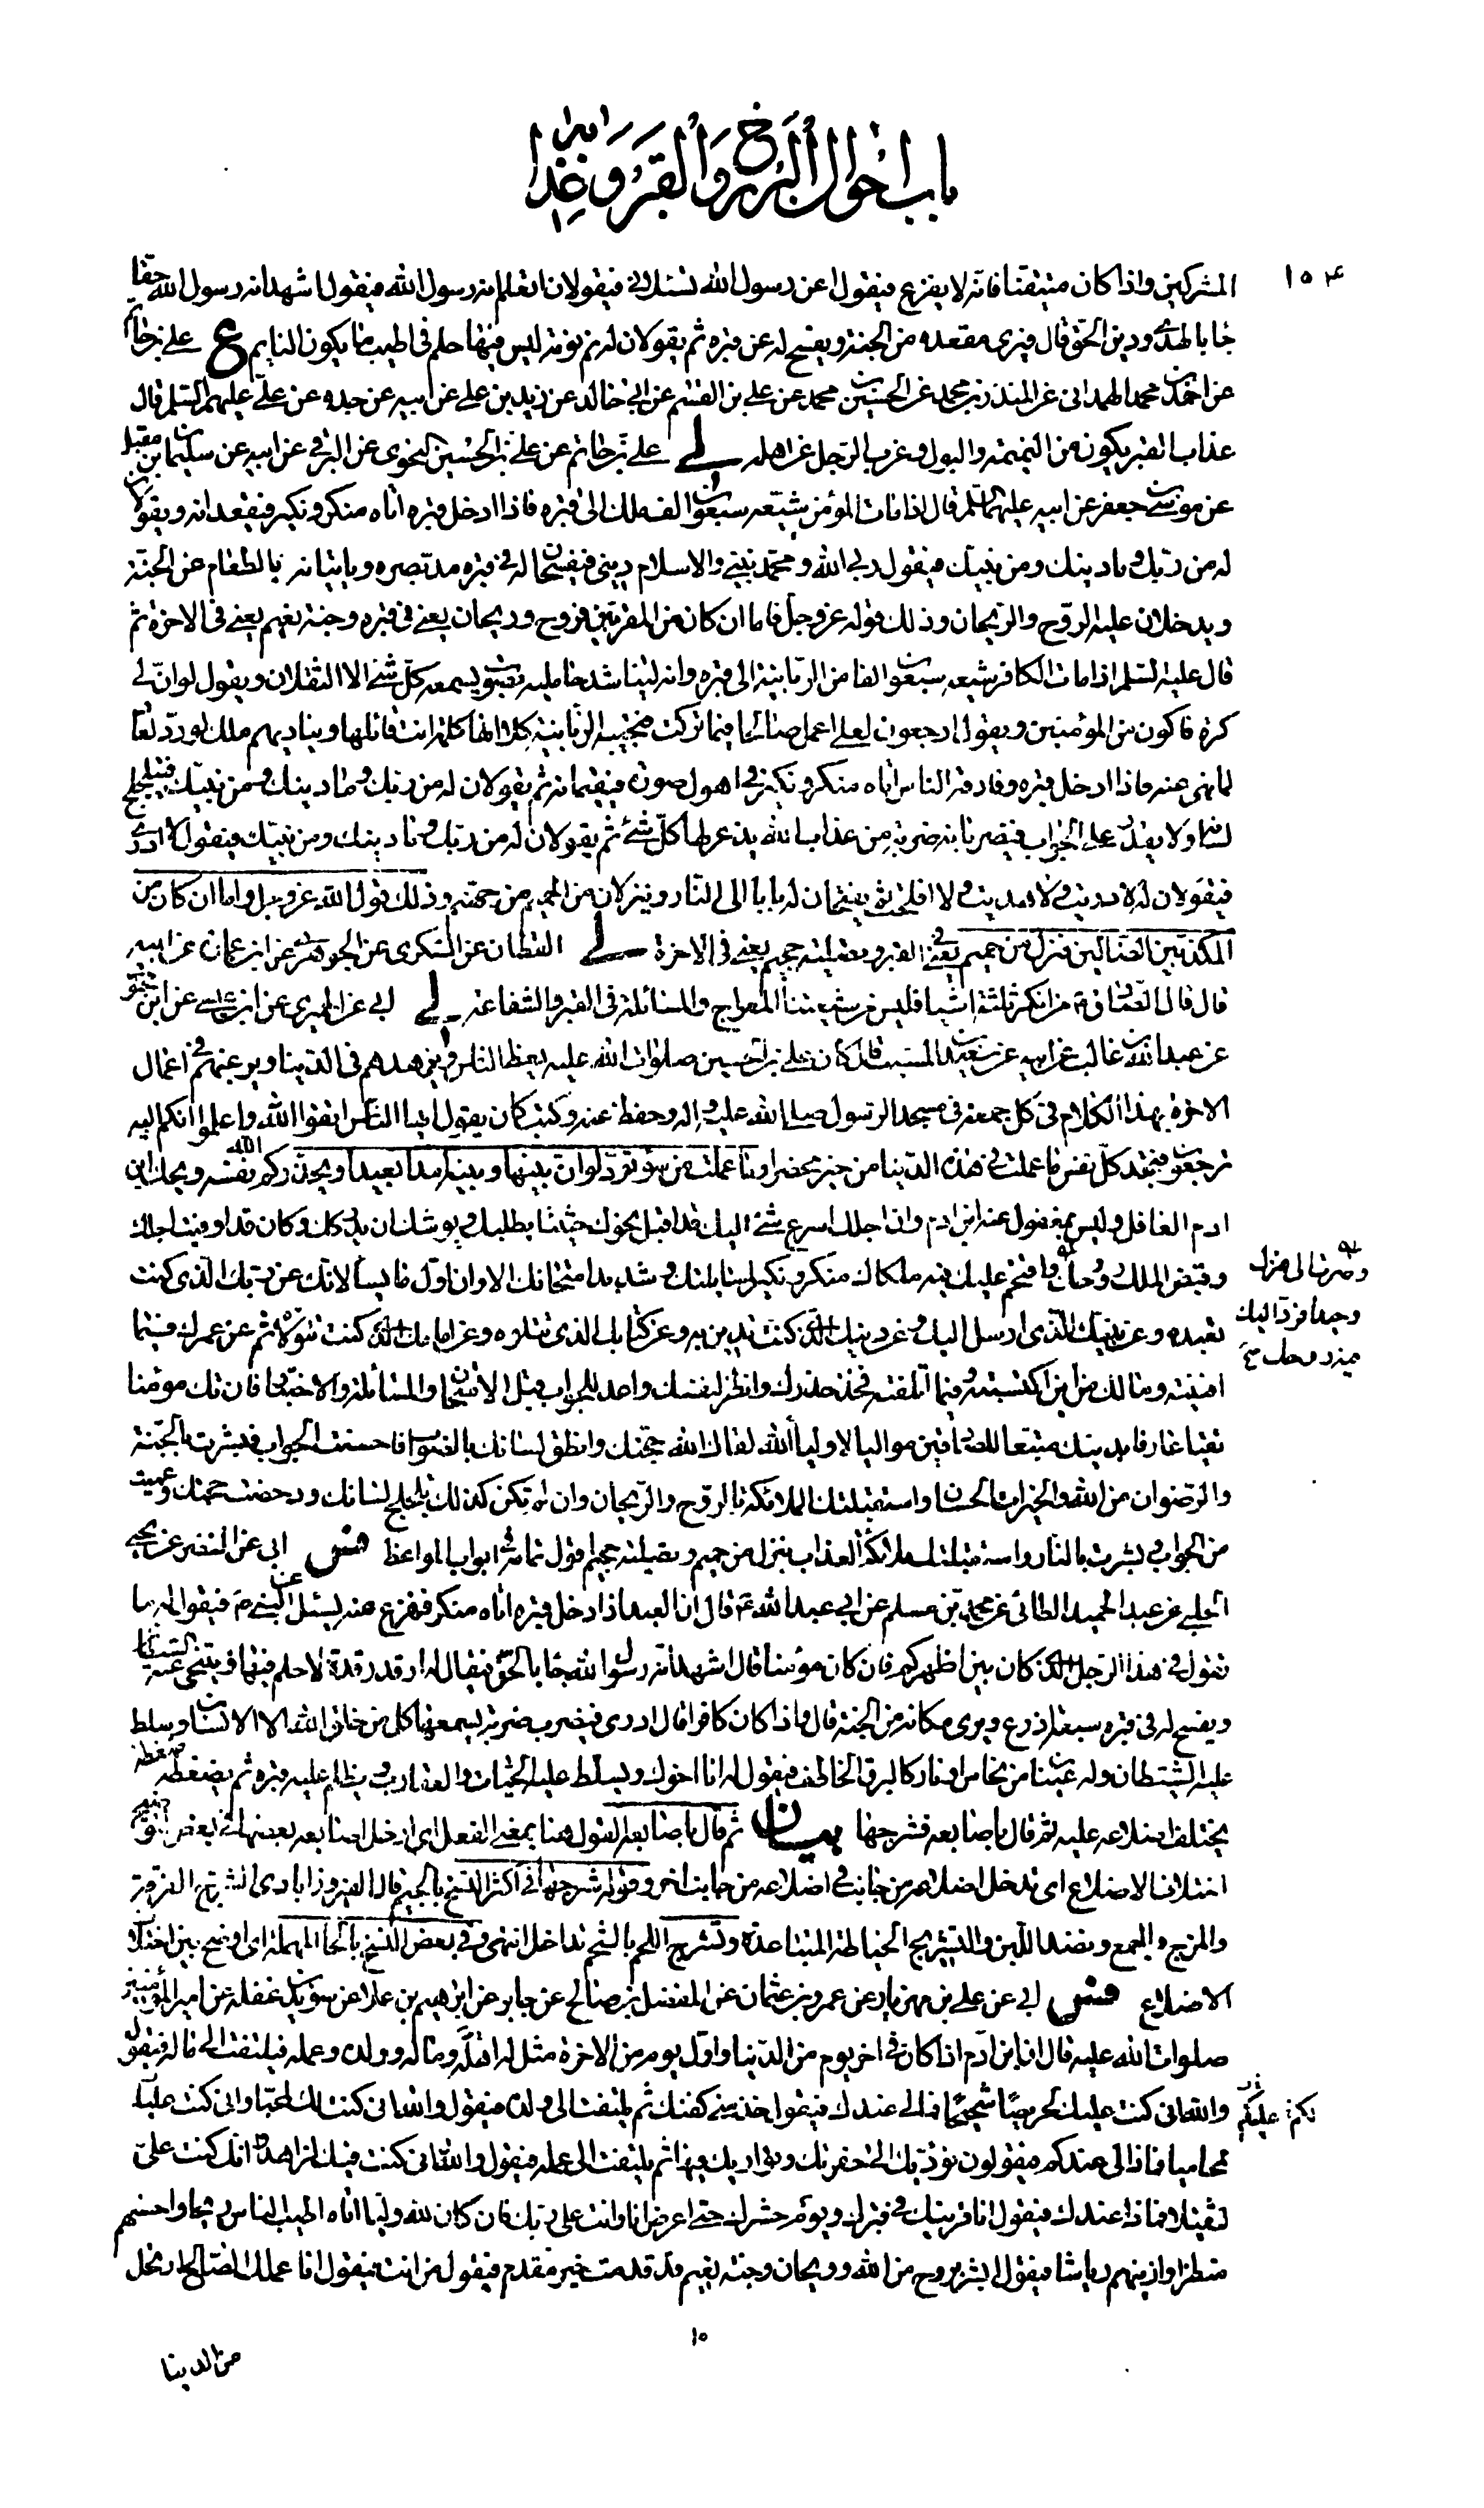 باب احوال البرزخ والقبر وعذابه
١٥٤
المشركين واذا كان متيقنا فانه لا يفزع فيقول اعن رسول الله تسئلاني فيقولان اتعلم انه رسول الله فيقول اشهد انه رسول الله حقا
جاء بالهدى ودين الحق قال فيرى مقعده من الجنة ويفسح له عن قبره ثم يقولان له نم نومة ليس فيها حلم في اطيب ما يكون النايم ع علي بن حاتم
عن احمد بن محمد الهمداني عن المنذر بن محمد عن الحسين بن محمد عن علي بن القسم عن ابي خالد عن زيد بن علي عن ابيه عن جده عن علي عليهم السلم قال
عذاب القبر يكون من النميمة والبول وعزب الرجل عن اهله لي علي بن حاتم عن علي بن الحسين النحوي عن البرقي عن ابيه عن سليمان بن مقبل
عن موسى بن جعفر عن ابيه عليهما السلم قال اذا مات المؤمن شيعه سبعون الف ملك الى قبره فاذا ادخل قبره اتاه منكر ونكير فيقعدانه ويقولان
له من ربك وما دينك ومن نبيك فيقول ربي الله ومحمد نبيي والاسلام ديني فيفسحان له في قبره مد بصره وياتيانه بالطعام من الجنة
ويدخلان عليه الروح والريحان وذلك قوله عز وجل فاما ان كان من المقربين فروح وريحان يعني في قبره وجنة نعيم يعني في الاخرة ثم
قال عليه السلم اذا مات الكافر شيعه سبعون الفا من الزبانية الى قبره وانه ليناشد حامليه بصوت يسمعه كل شئ الا الثقلان ويقول لو ان لي
كرة فاكون من المؤمنين ويقول ارجعون لعلي اعمل صالحا فيما تركت فتجيبه الزبانية كلا انها كلمة انت قائلها ويناديهم ملك لو رد لعاد
لما نهي عنه فاذا ادخل قبره وفارقه الناس اتاه منكر ونكير في اهول صورة فيقيمانه ثم يقولان له من ربك وما دينك ومن نبيك فيتلجلج
لسانه ولا يقدر على الجواب فيضربانه ضربة من عذاب الله يذعر لها كل شئ ثم يقولان له من ربك وما دينك ومن نبيك فيقول لا ادري
فيقولان له لا دريت ولا هديت ولا افلحت ثم يفتحان له بابا الى النار وينزلان من الحميم من جهنم وذلك قول الله عز وجل واما ان كان من
المكذبين الضالين فنزل من حميم يعني في القبر وتصلية جحيم يعني في الاخرة لي القطان عن السكري عن الجوهري عن ابن عمارة عن ابيه
قال قال الصادق ع من انكر ثلثة اشياء فليس من شيعتنا المعراج والمسائلة في القبر والشفاعة لي ابي عن الحميري عن ابن عيسى عن ابن محبوب
عن عبد الله بن غالب عن ابيه عن سعيد بن المسيب قال كان علي بن الحسين صلوات الله عليه يعظ الناس ويزهدهم في الدنيا ويرغبهم في اعمال
الاخرة بهذا الكلام في كل جمعة في مسجد الرسول صلى الله عليه واله وحفظ عنه وكتب كان يقول ايها الناس اتقوا الله واعلموا انكم اليه
ترجعون فتجد كل نفس ما عملت في هذه الدنيا من خير محضرا وما عملت من سوء تود لو ان بينها وبينه امدا بعيدا ويحذركم الله نفسه ويحك ابن
ادم الغافل وليس بمغفول عنه ابن ادم وان اجلك اسرع شئ اليك قد اقبل نحوك حثيثا يطلبك ويوشك ان يدركك وكان قد اوفيت اجلك
وقبض الملك روحك واقتحم عليك فيه ملكاك منكر ونكير لمسايلتك وشديد امتحانك الا وان اول ما يسألانك عن ربك الذي كنت
وصرت الى منزل
وحيدا فرد اليك
فيه روحك صح
تعبده وعن نبيك الذي ارسل اليك وعن دينك الذي كنت تدين به وعن كتابك الذي تتلوه وعن امامك الذي كنت تتولاه ثم عن عمرك فيما
افنيته ومالك من اين اكتسبته وفيما اتلفته فخذ حذرك وانظر لنفسك واعد للجواب قبل الامتحان والمسائلة والاختبار فان تك مؤمنا
تقيا عارفا بدينك متبعا للصادقين مواليا لاولياء الله لقاك الله حجتك وانطق لسانك بالصواب فاحسنت الجواب فبشرت بالجنة
والرضوان من الله والخيرات الحسان واستقبلتك الملائكة بالروح والريحان وان لم تكن كذلك تلجلج لسانك ودحضت حجتك وعميت
من الجواب وبشرت بالنار واستقبلتك ملائكة العذاب بنزل من حميم وتصلية جحيم اقول تمامه في ابواب المواعظ فس ابي عن النضر عن يحيى
الحلبي عن عبد الحميد الطائي عن محمد بن مسلم عن ابي عبد الله ع قال ان العبد اذا ادخل قبره اتاه منكر ففزع منه يسئل عن النبي ص فيقول له ما
تقول في هذا الرجل الذي كان بين اظهركم فان كان مؤمنا قال اشهد انه رسول الله جاء بالحق فيقال له ارقد رقدة لا حلم فيها ويتنحى عنه الشيطان
ويفسح له في قبره سبعة اذرع ويرى مكانه من الجنة قال واذا كان كافرا قال ما ادري فيضرب ضربة يسمعها كل من خلق الله الا الانسان وسلط
عليه الشيطان وله عينان من نحاس او نار كالبرق الخاطف فيقول له انا اخوك ويسلط عليه الحيات والعقارب ويظلم عليه قبره ثم يضغطه ضغطة
يختلف اضلاعه عليه ثم قال باصابعه فشرجها بيان ثم قال باصابعه القول هنا بمعنى الفعل اي ادخل اصابعه بعضها في بعض لتوضيح
اختلاف الاضلاع اي تدخل اضلاعه من جانب في اضلاعه من جانب اخر وقوله شرجها في اكثر النسخ بالجيم قال الفيروزابادي الشرج الفرقة
والمزج والجمع ونضد اللبن والتشريج الخياطة المتباعدة وتشرج اللحم بالشحم تداخل انتهى وفي بعض النسخ بالحاء المهملة اي اوضح بين اختلاف
الاضلاع فس ابي عن علي بن مهزيار عن عمرو بن عثمان عن المفضل بن صالح عن جابر عن ابرهيم بن علاء عن سويد بن غفلة عن امير المؤمنين
صلوات الله عليه قال ان ابن ادم اذا كان في اخر يوم من الدنيا واول يوم من الاخرة مثل له اهله وماله وولده وعمله فيلتفت الى ماله فيقول
والله اني كنت عليك لحريصا شحيحا فما لي عندك فيقول خذ مني كفنك ثم يلتفت الى ولده فيقول والله اني كنت لك لمحبا واني كنت عليك
لكم عليكم
لمحاميا فماذا لي عندكم فيقولون نؤديك الى حفرتك ونواريك فيها ثم يلتفت الى عمله فيقول والله اني كنت فيك لزاهدا وانك كنت علي
لثقيلا فماذا عندك فيقول انا قرينك في قبرك ويوم حشرك حتى اعرض انا وانت على ربك فان كان لله وليا اتاه اطيب الناس ريحا واحسنهم
منظرا وازينهم رياشا فيقول ابشر بروح من الله وريحان وجنة نعيم قد قدمت خير مقدم فيقول من انت فيقول انا عملك الصالح ارتحل
١٠
من الدنيا